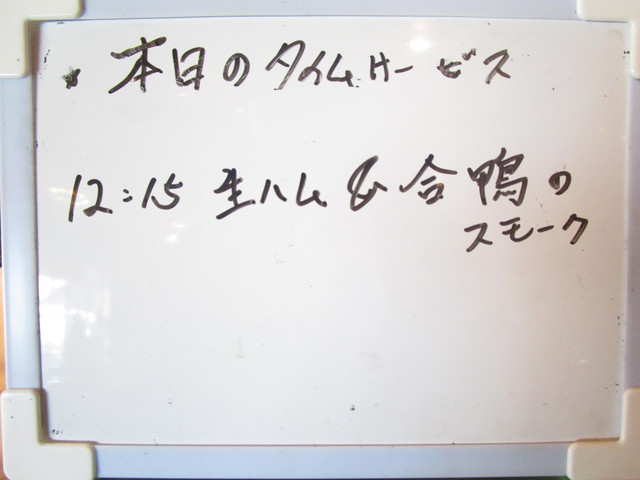 * 本日のタイムサービス
12:15 生ハム & 合鴨の
スモーク